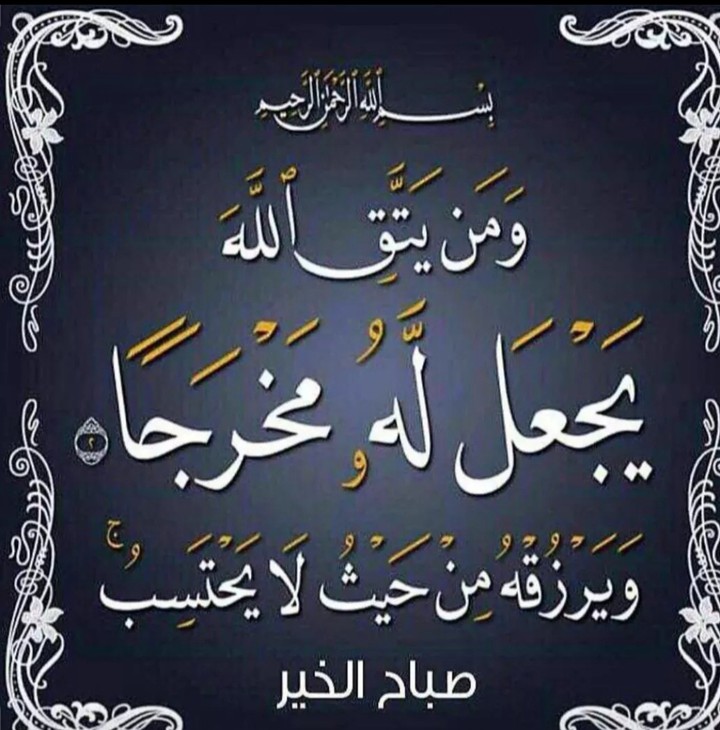 بِسْمِ ٱللَّهِ ٱلرَّحْمَٰنِ ٱلرَّحِيمِ
وَمَن يَتَّقِ ٱللَّهَ
يَجْعَل لَّهُۥ مَخْرَجًا ٢
وَيَرْزُقْهُ مِنْ حَيْثُ لَا يَحْتَسِبُ ۚ
صباح الخير